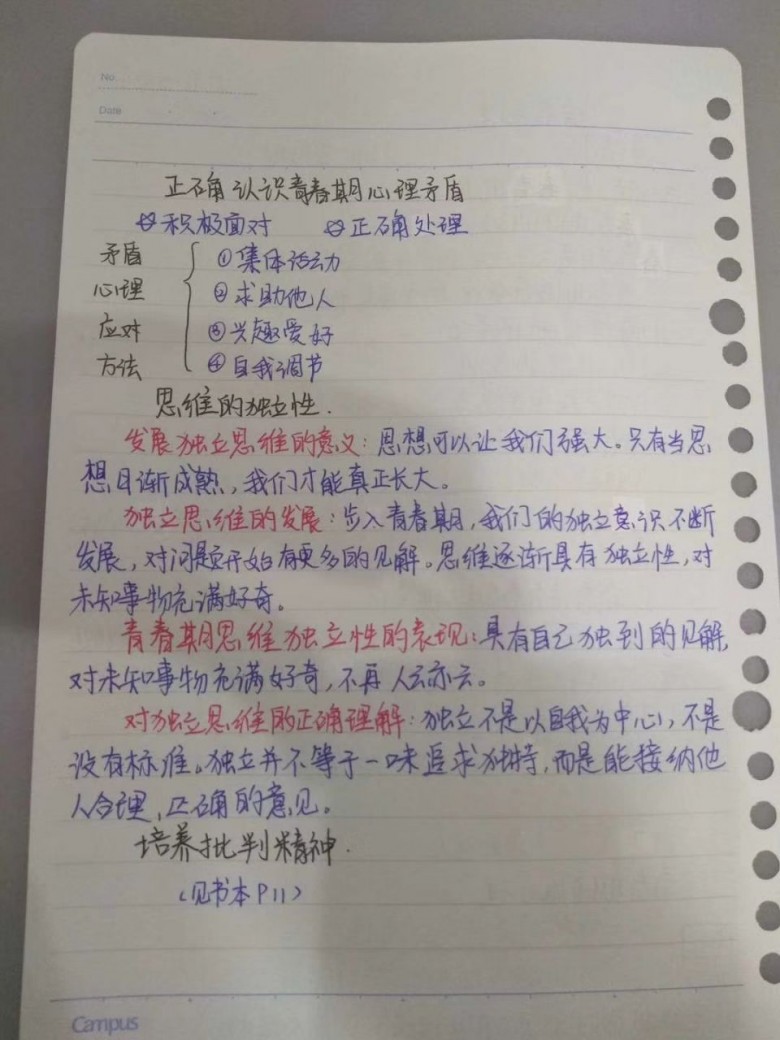 No.
Date
正确认识青春期心理矛盾
积极面对 正确处理
矛盾 ①集体活动
心理 ②求助他人
应对 ③兴趣爱好
方法 ④自我调节
思维的独立性.
发展独立思维的意义:思想可以让我们强大。只有当思
想日渐成熟,我们才能真正长大。
独立思维的发展:步入青春期,我们的独立意识不断
发展,对问题开始有更多的见解。思维逐渐具有独立性,对
未知事物充满好奇。
青春期思维独立性的表现:具有自己独到的见解,
对未知事物充满好奇,不再人云亦云。
对独立思维的正确理解:独立不是以自我为中心,不是
没有标准。独立并不等于一味追求独特,而是能接纳他
人合理,正确的意见。
培养批判精神.
(见书本P11)
Campus